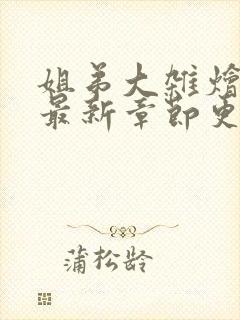 姐弟大雑燴
最新章節更
蒲松龄